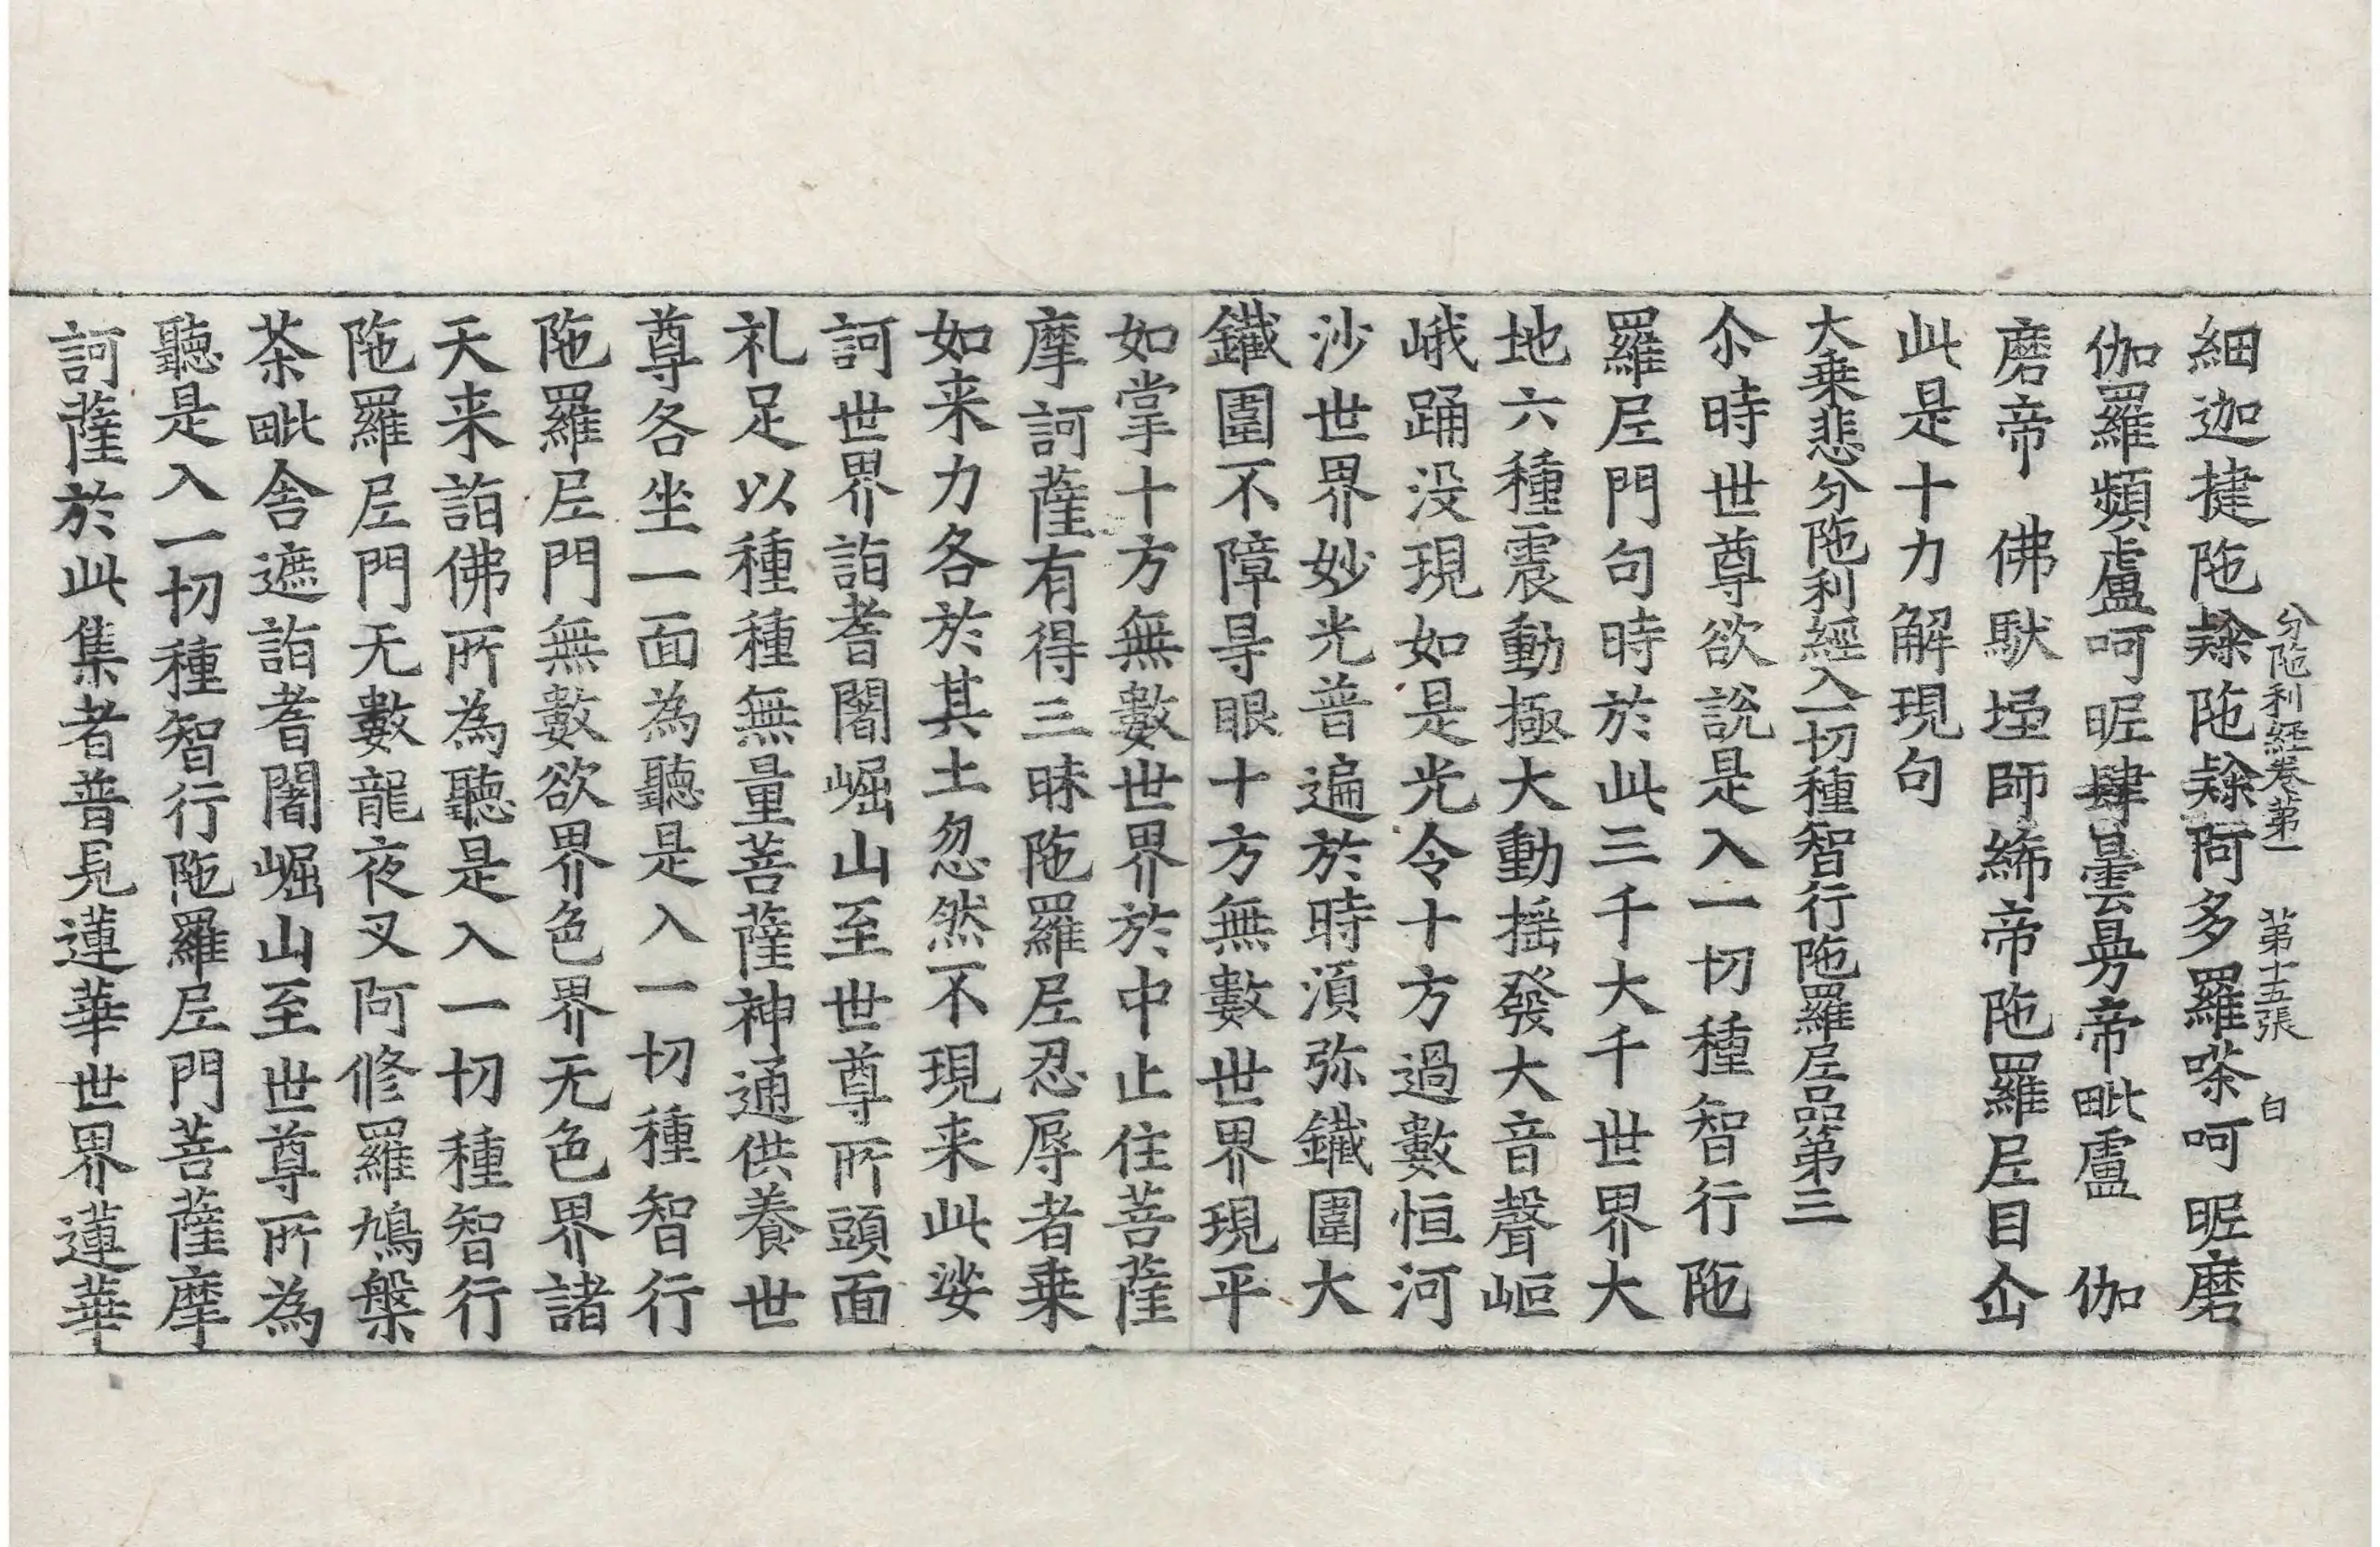 分陁利経卷第一 第十五張 白
細迦揵陁𨽻陁𨽻阿多羅嗏呵昵磨
伽羅頻盧呵昵肆曇㝵帝毗盧 伽
磨帝 佛馱埿師締帝陁羅𡰱目
此是十力解現句
大乗悲分陁利經入一切種智行陁羅𡰱品第三
尒時世尊欲說是入一切種智行陁
羅𡰱門句時於此三千大千世界大
地六種震動極大動揺發大音聲岖
峨踊没現如是光令十方過數恒河
沙世界妙光普遍於時湏弥鐵圍大
鐵圍不障㝵眼十方無數世界現平
如掌十方無數世界於中止住菩薩
摩訶薩有得三昧陁羅𡰱忍辱者乗
如来力各於其土忽然不現来此娑
訶世界詣耆闍崛山至世尊所頭面
礼足以種種無量菩薩神通供養世
尊各坐一面為聽是入一切種智行
陁羅𡰱門無數欲界色界无色界諸
天来詣佛所為聽是入一切種智行
陁羅𡰱門无數龍夜叉阿修羅鳩槃
茶毗舎遮詣耆闍崛山至世尊所為
聽是入一切種智行陁羅𡰱門菩薩摩
訶薩於此集者普見蓮華世界蓮華